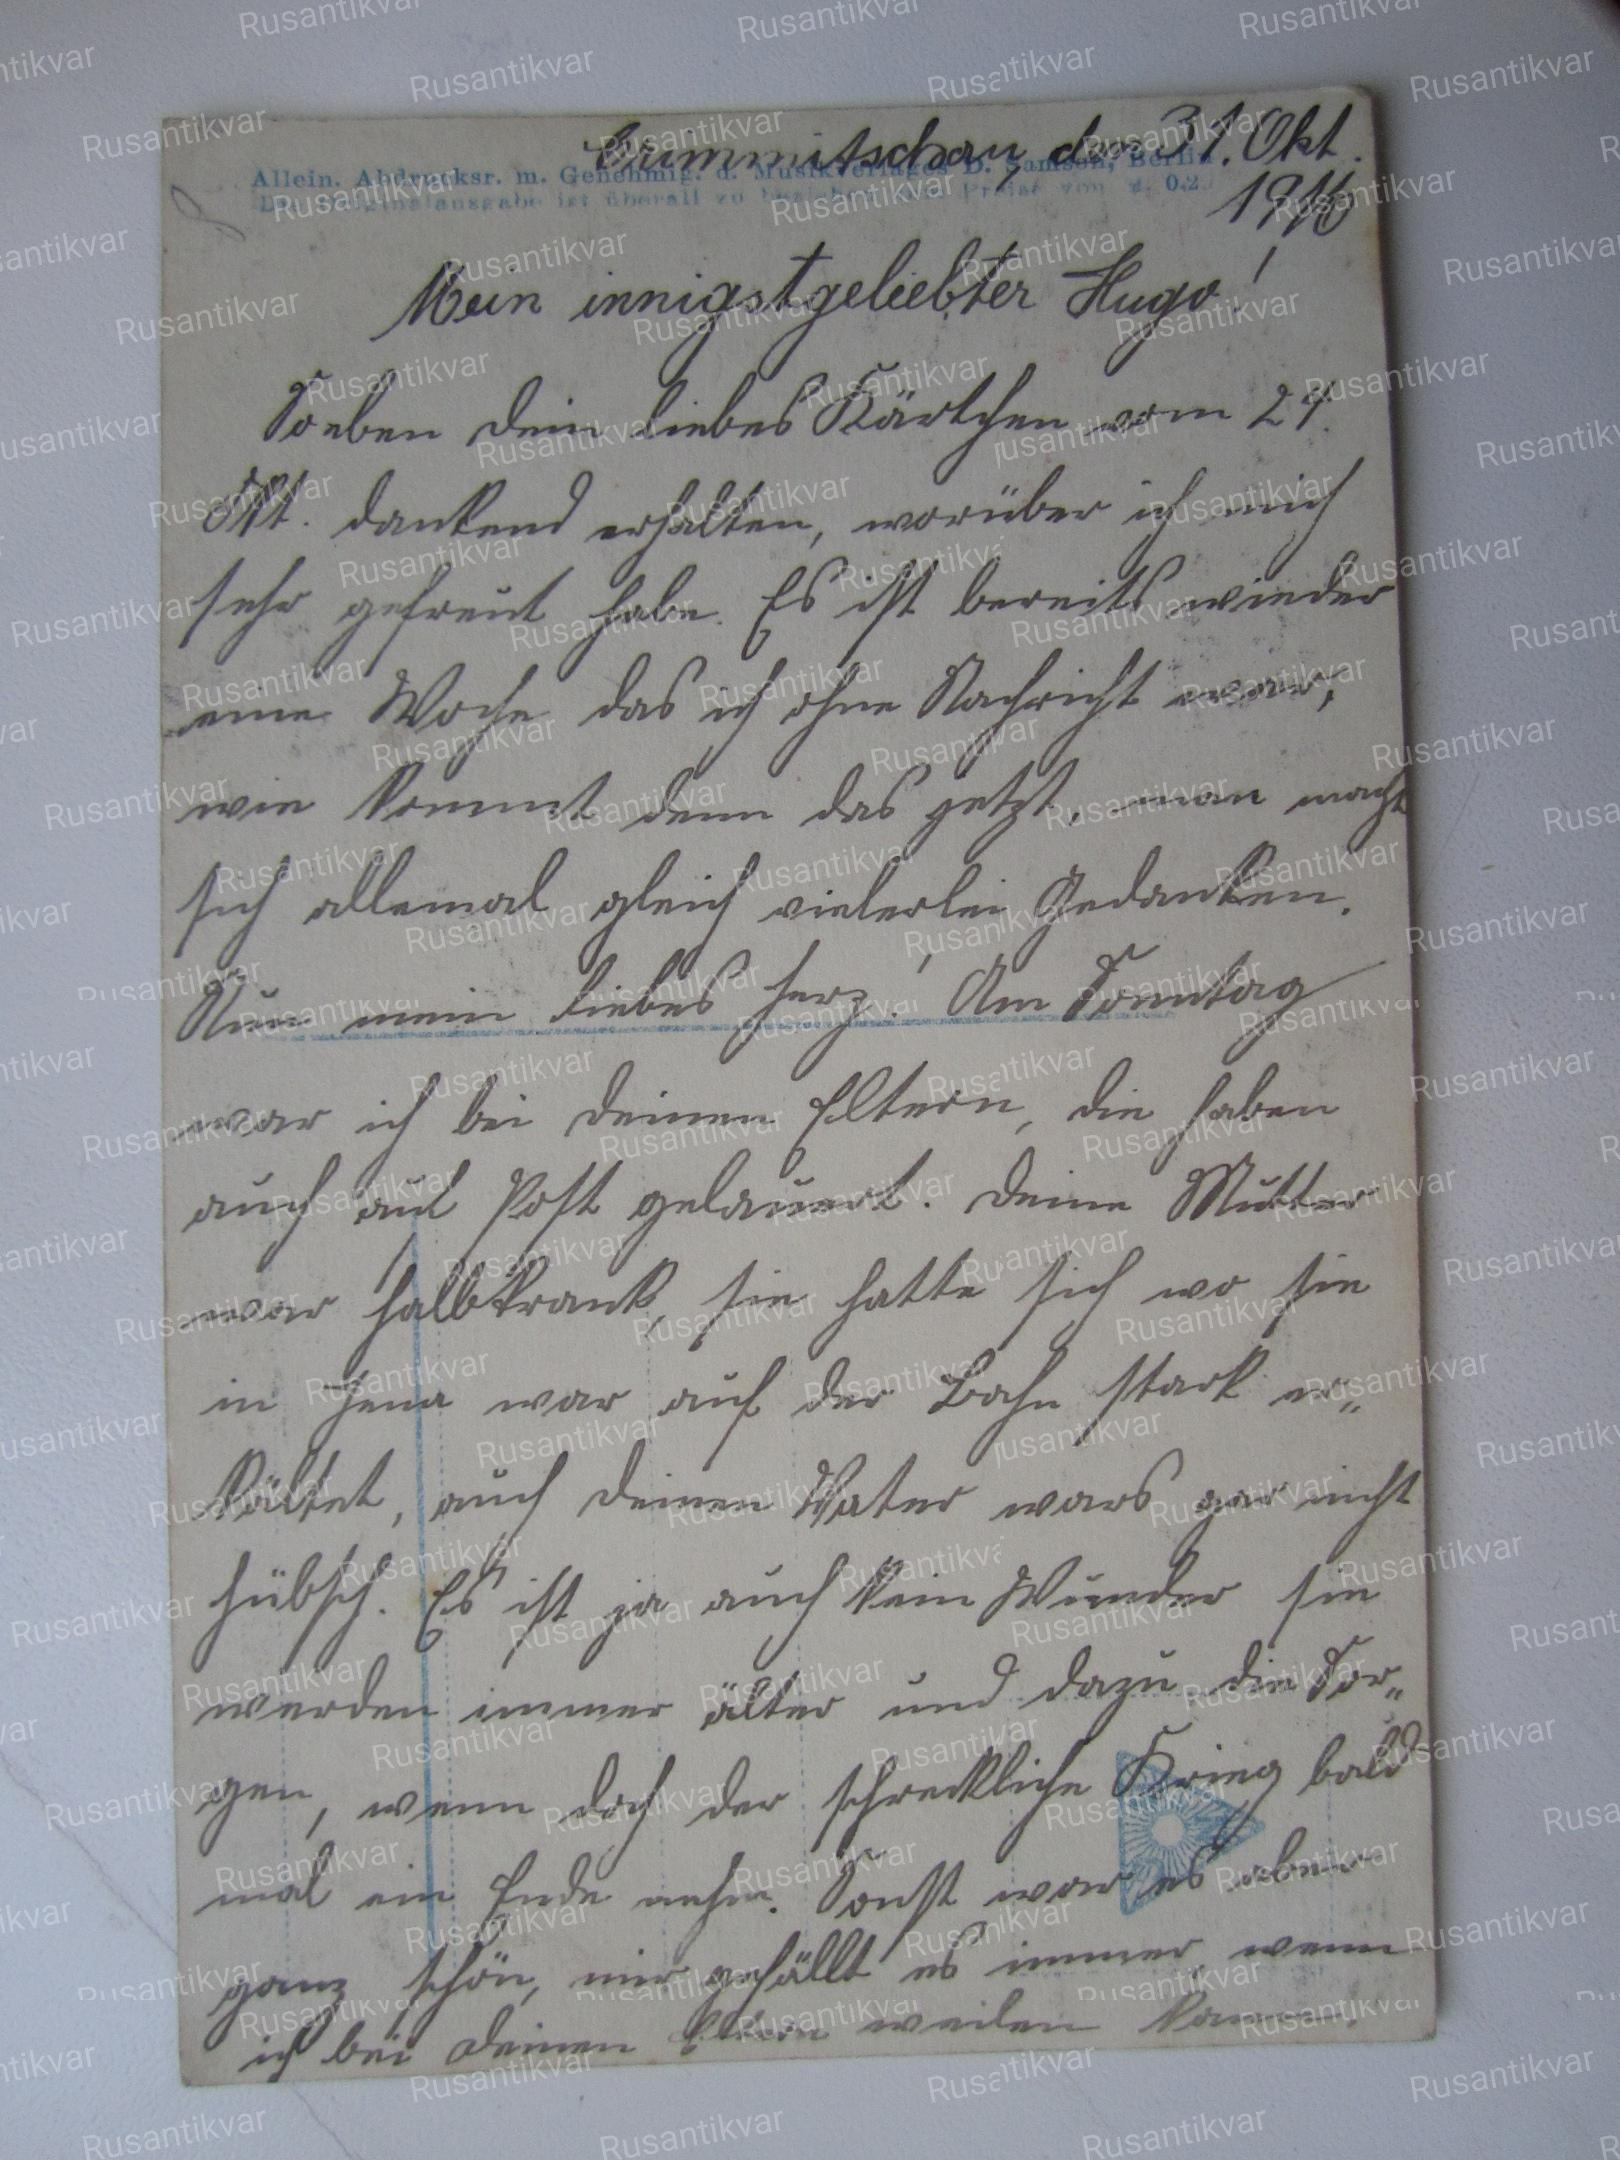 Crimmitschau, den 31. Okt.
Allein. Abdrucksr. m. Genehmig. d. Musikverlages D. Samson, Berlin
Die Originalausgabe ist überall zu beziehen Preise von 0.2
1916
Mein innigstgeliebter Hugo!
Soeben dein liebes Kärtchen vom 27.
Okt. dankend erhalten, worüber ich mich
sehr gefreut habe. Es ist bereits wieder
eine Woche das ich ohne Nachricht war,
wie kommt denn das jetzt, man macht
sich allemal gleich vielerlei Gedanken.
Nun mein liebes Herz! Am Sonntag
war ich bei deinen Eltern, die haben
auch auf Post gelauert. Deine Mutter
war halbkrank, sie hatte sich wo sie
in Jena war auf der Bahn stark er„
kältet, auch deinen Vater wars gar nicht
hübsch. Es ist ja auch kein Wunder sie
werden immer älter und dazu die Sor„
gen, wenn doch der schreckliche Krieg bald
mal ein Ende nehm. Sonst war es aber
ganz schön, mir gefällt es immer, wenn
ich bei deinen Eltern weilen kann.